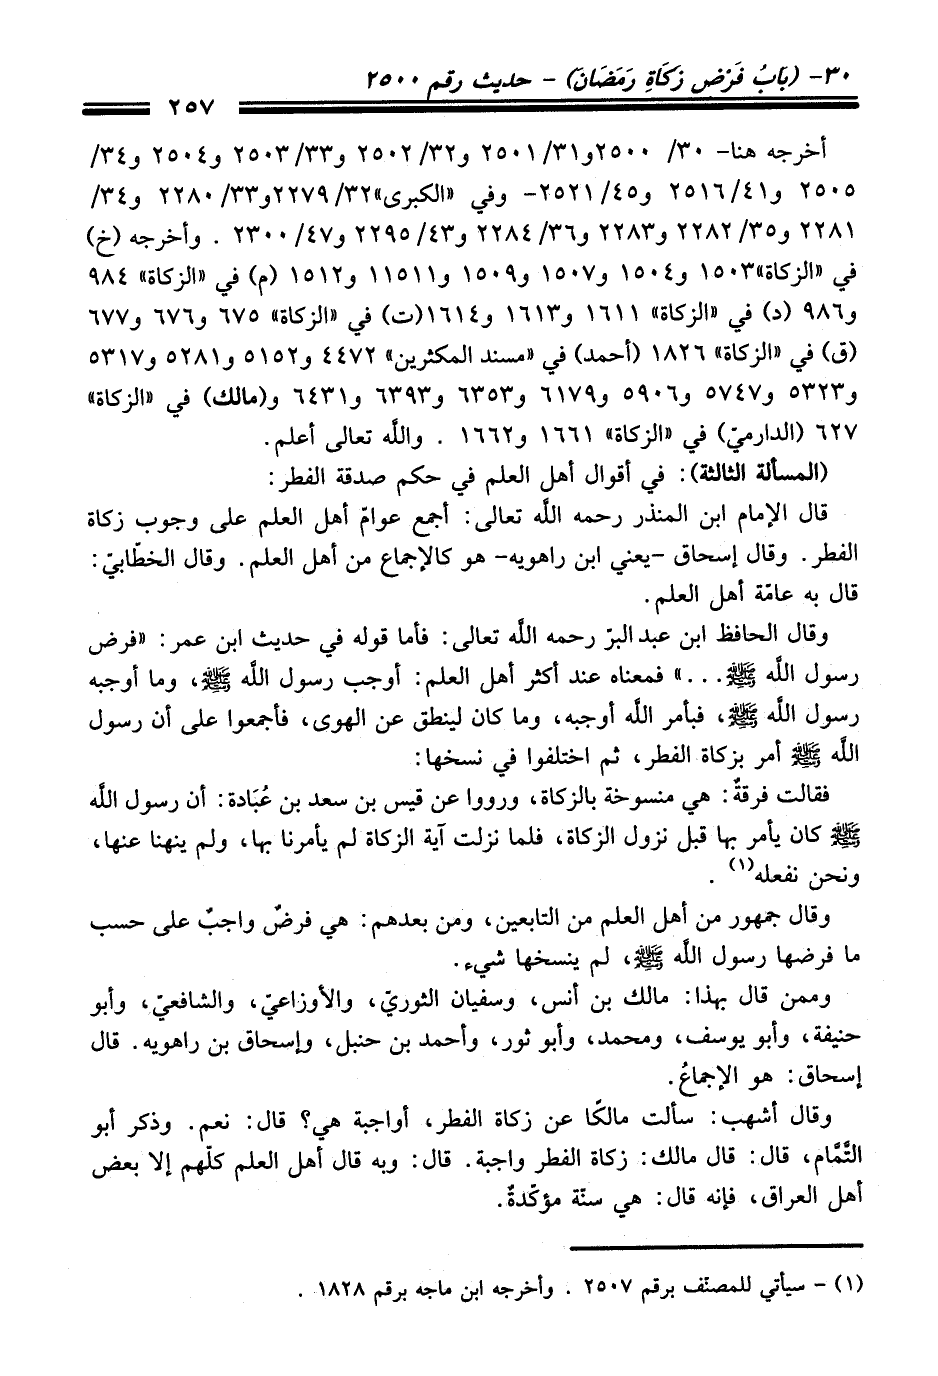 ٣٠- (بَابُ فَرْضِ زَكَاةِ رَمَضَانَ) - حديث رقم ٢٥٠٠
٢٥٧
أخرجه هنا- ٣٠/ ٢٥٠٠و٣١/ ٢٥٠١ و٣٢/ ٢٥٠٢ و٣٣/ ٢٥٠٣ و٢٥٠٤ و٣٤/
٢٥٠٥ و٤١/ ٢٥١٦ و٤٥/ ٢٥٢١- وفي «الكبرى»٣٢/ ٢٢٧٩و٣٣/ ٢٢٨٠ و٣٤/
٢٢٨١ و٣٥/ ٢٢٨٢ و٢٢٨٣ و٣٦/ ٢٢٨٤ و٤٣/ ٢٢٩٥ و٤٧/ ٢٣٠٠ . وأخرجه (خ)
في «الزكاة»١٥٠٣ و١٥٠٤ و١٥٠٧ و١٥٠٩ و١١٥١١ و١٥١٢ (م) في «الزكاة» ٩٨٤
و٩٨٦ (د) في «الزكاة» ١٦١١ و١٦١٣ و١٦١٤(ت) في «الزكاة» ٦٧٥ و٦٧٦ و٦٧٧
(ق) في «الزكاة» ١٨٢٦ (أحمد) في «مسند المكثرين» ٤٤٧٢ و٥١٥٢ و٥٢٨١ و٥٣١٧
و٥٣٢٣ و٥٧٤٧ و٥٩٠٦ و٦١٧٩ و٦٣٥٣ و٦٣٩٣ و٦٤٣١ و(مالك) في «الزكاة»
٦٢٧ (الدارميّ) في «الزكاة» ١٦٦١ و١٦٦٢ . واللَّه تعالى أعلم.
(المسألة الثالثة): في أقوال أهل العلم في حكم صدقة الفطر:
قال الإمام ابن المنذر رحمه اللَّه تعالى: أجمع عوامّ أهل العلم على وجوب زكاة
الفطر. وقال إسحاق -يعني ابن راهويه- هو كالإجماع من أهل العلم. وقال الخطّابيّ:
قال به عامّة أهل العلم.
وقال الحافظ ابن عبد البرّ رحمه اللَّه تعالى: فأما قوله في حديث ابن عمر: «فرض
رسول اللَّه ﷺ...» فمعناه عند أكثر أهل العلم: أوجب رسول اللَّه ﷺ، وما أوجبه
رسول اللَّه ﷺ، فبأمر اللَّه أوجبه، وما كان لينطق عن الهوى، فأجمعوا على أن رسول
اللَّه ﷺ أمر بزكاة الفطر، ثم اختلفوا في نسخها:
فقالت فرقةٌ: هي منسوخة بالزكاة، ورووا عن قيس بن سعد بن عُبَادة: أن رسول اللَّه
ﷺ كان يأمر بها قبل نزول الزكاة، فلما نزلت آية الزكاة لم يأمرنا بها، ولم ينهنا عنها،
ونحن نفعله(١) .
وقال جمهور من أهل العلم من التابعين، ومن بعدهم: هي فرضٌ واجبٌ على حسب
ما فرضها رسول اللَّه ﷺ، لم ينسخها شيء.
وممن قال بهذا: مالك بن أنس، وسفيان الثوريّ، والأوزاعيّ، والشافعيّ، وأبو
حنيفة، وأبو يوسف، ومحمد، وأبو ثور، وأحمد بن حنبل، وإسحاق بن راهويه. قال
إسحاق: هو الإجماعُ.
وقال أشهب: سألت مالكًا عن زكاة الفطر، أواجبة هي؟ قال: نعم. وذكر أبو
التَّمَّام، قال: قال مالك: زكاة الفطر واجبة. قال: وبه قال أهل العلم كلّهم إلا بعض
أهل العراق، فإنه قال: هي سنّة مؤكّدةٌ.
(١) - سيأتي للمصنّف برقم ٢٥٠٧ . وأخرجه ابن ماجه برقم ١٨٢٨ .